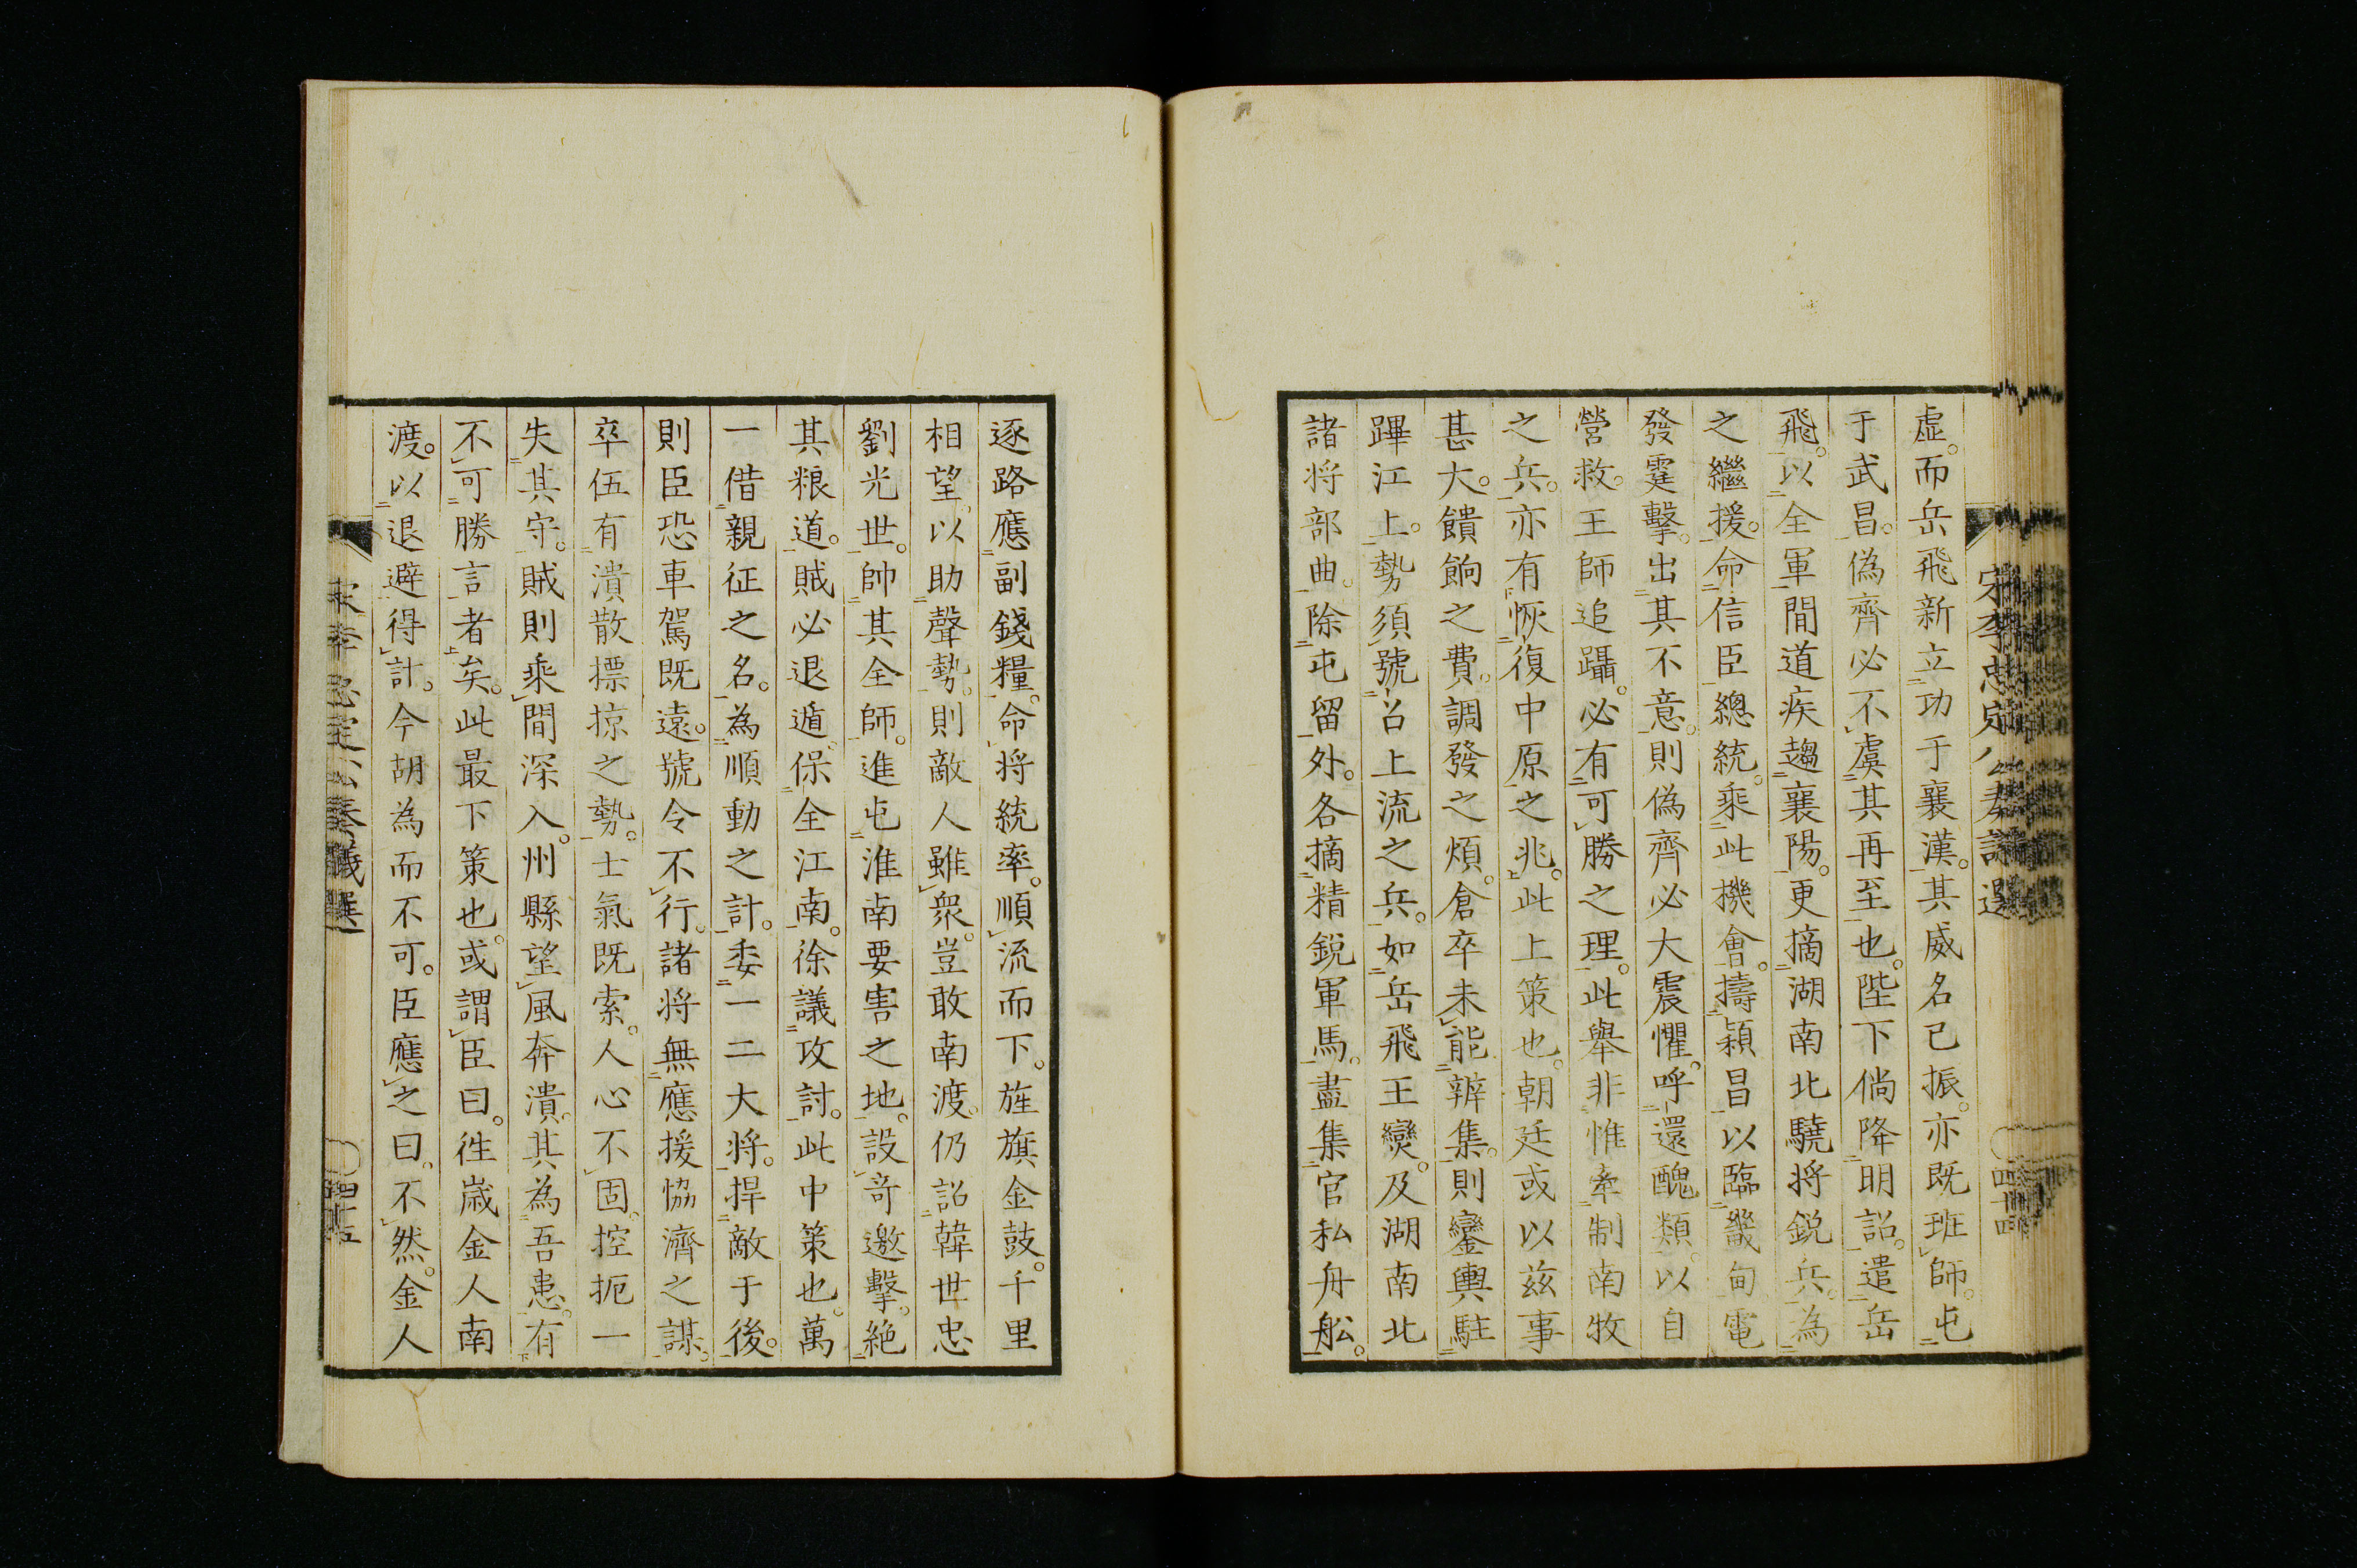 虛。而岳飛新立功于襄漢。其威名已振。亦既班師。屯
于武昌。偽齊必不虞其再至也。陛下倘降明詔。遣岳
飛。以全軍間道疾趨襄陽。更摘湖南北驍将銳兵。為
之繼援。命信臣總統。乘此機會。擣潁昌以臨畿甸電
發霆擊。出其不意。則偽齊必大震懼。呼還醜類。以自
營救。王師追躡。必有可勝之理。此舉非惟牽制南牧
之兵。亦有恢復中原之兆。此上策也。朝廷或以兹事
甚大。饋餉之費。調發之煩。倉卒未能辨集。則鑾輿駐
蹕江上。勢須號召上流之兵。如岳飛王𤫉。及湖南北
諸将部曲。除屯留外。各摘精銳軍馬。盡集官私舟舩。
宋李忠定公奏議選
四十四
逐路應副錢糧。命将統率。順流而下。旌旗金鼓。千里
相望。以助聲勢。則敵人雖衆。豈敢南渡。仍詔韓世忠
劉光世。帥其全師。進屯淮南要害之地。設奇邀擊。絶
其粮道。賊必退遁。保全江南。徐議攻討。此中策也。萬
一借親征之名。為順動之計。委一二大将。捍敵于後。
則臣恐車駕既遠。號令不行。諸将無應援協濟之謀。
卒伍有潰散摽掠之勢。士氣既索。人心不固。控扼一
失其守。賊則乘間深入。州縣望風奔潰。其為吾患。有
不可勝言者矣。此最下策也。或謂臣曰。徃歳金人南
渡。以退避得計。今胡為而不可。臣應之曰。不然。金人
宋李忠定公奏議選
四十五